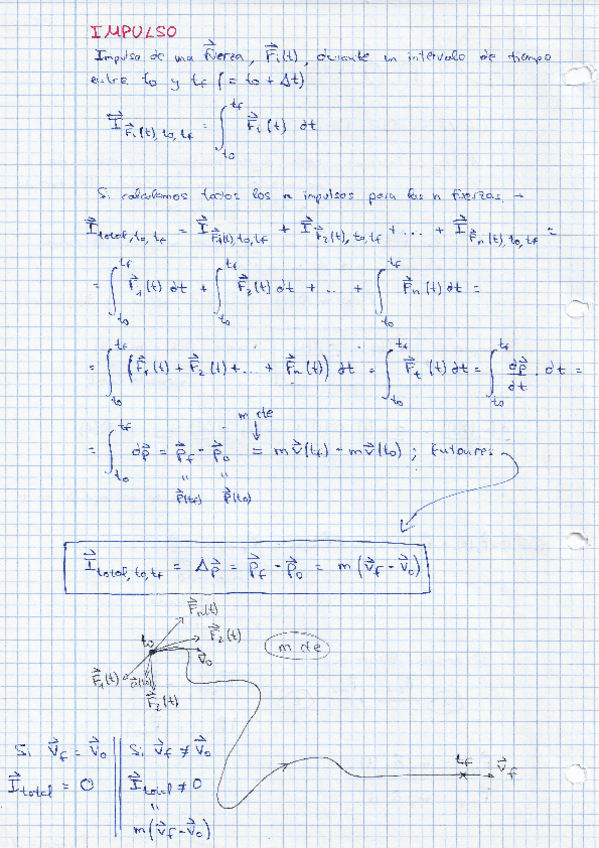 IMPULSO
Impulso de una Fuerza, F⃗ᵢ(t), durante un intervalo de tiempo
entre t₀ y t_f (= t₀ + Δt)
I⃗_{F⃗ᵢ(t), t₀, t_f} = ∫_{t₀}^{t_f} F⃗ᵢ(t) dt
Si calculamos todos los n impulsos para las n fuerzas →
I⃗_{total, t₀, t_f} = I⃗_{F⃗₁(t), t₀, t_f} + I⃗_{F⃗₂(t), t₀, t_f} + ... + I⃗_{F⃗ₙ(t), t₀, t_f} =
= ∫_{t₀}^{t_f} F⃗₁(t) dt + ∫_{t₀}^{t_f} F⃗₂(t) dt + ... + ∫_{t₀}^{t_f} F⃗ₙ(t) dt =
= ∫_{t₀}^{t_f} (F⃗₁(t) + F⃗₂(t) + ... + F⃗ₙ(t)) dt = ∫_{t₀}^{t_f} F⃗_t (t) dt = ∫_{t₀}^{t_f} dp⃗/dt · dt =
m cte
= ∫_{t₀}^{t_f} dp⃗ = p⃗_f - p⃗₀ = m v⃗(t_f) - m v⃗(t₀) ; Entonces
" "
p⃗(t_f) p⃗(t₀)
I⃗_{total, t₀, t_f} = Δp⃗ = p⃗_f - p⃗₀ = m (v⃗_f - v⃗₀)
F⃗ₙ(t)
t₀ F⃗₂(t) m cte
v⃗₀
F⃗₁(t)
F⃗₂(t)
t_f v⃗_f
Si v⃗_f = v⃗₀
I⃗_total = 0
Si v⃗_f ≠ v⃗₀
I⃗_total ≠ 0
"
m(v⃗_f - v⃗₀)